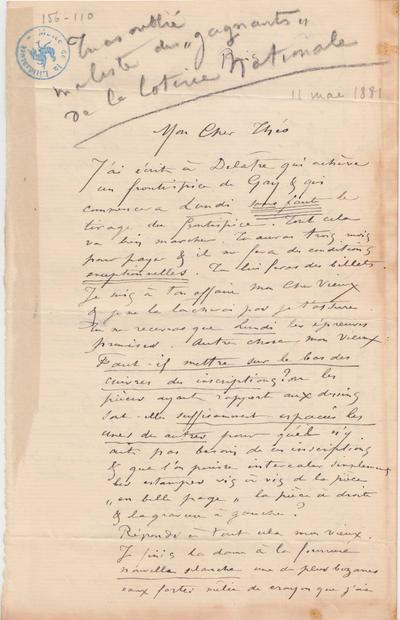 156-110
Tu as oublié
ma liste des "gagnants"
de la loterie Nationale
Paris
11 mai 1881
Mon Cher Théo
J'ai écrit à Delatre qui achève
un frontispice de Gay & qui
commencera Lundi sans faute le
tirage du frontispice. Tout cela
va bien marcher. Tu auras trois mois
pour payer & il te fera des conditions
exceptionnelles. Tu lui feras des billets.
Je suis à ton affaire mon cher vieux
& je ne la lacherai pas je t'assure.
Tu ne recevras que Lundi les épreuves
promises. Autre chose mon vieux:
Faut-il mettre sur le bas des
cuivres des inscriptions? ou les
pièces ayant rapport aux dessins
sont-elles suffisamment espacées les
unes des autres pour qu'il n'y
ait pas besoin de ces inscriptions
& que l'on puisse intercaler simplement
les estampes vis à vis de la pièce
"en belle page" la pièce à droite
& la gravure à gauche?
Réponds à tout cela mon vieux.
Je finis la dame à la fourrure
nouvelle planche une de plus bizarres
eaux fortes mêlée de crayon que j'aie